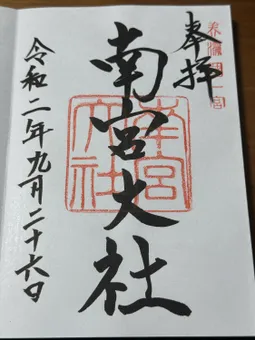 美濃國一宮
奉拝
南宮大社
南宮大社
令和二年九月二十六日